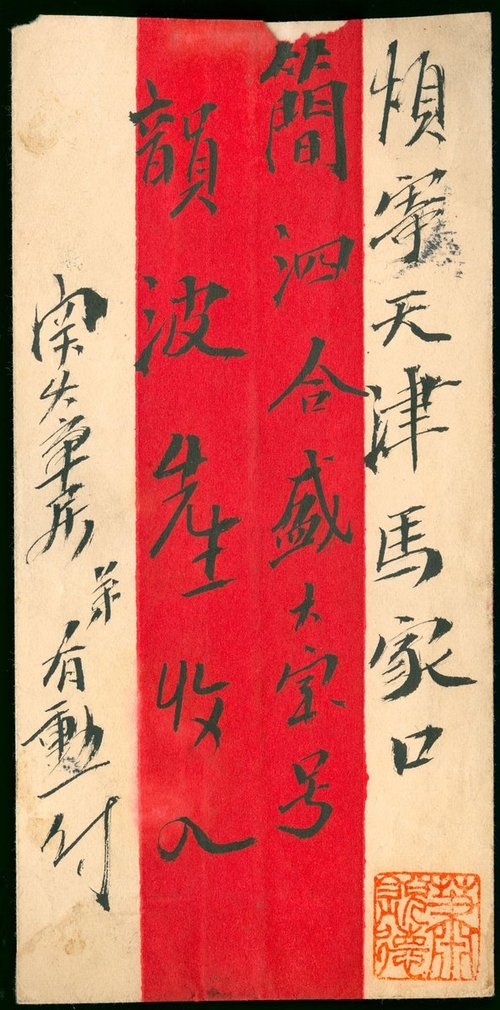 煩寄天津馬家口
簡泗合盛大宗号
韻波先生收入
弟有勳付